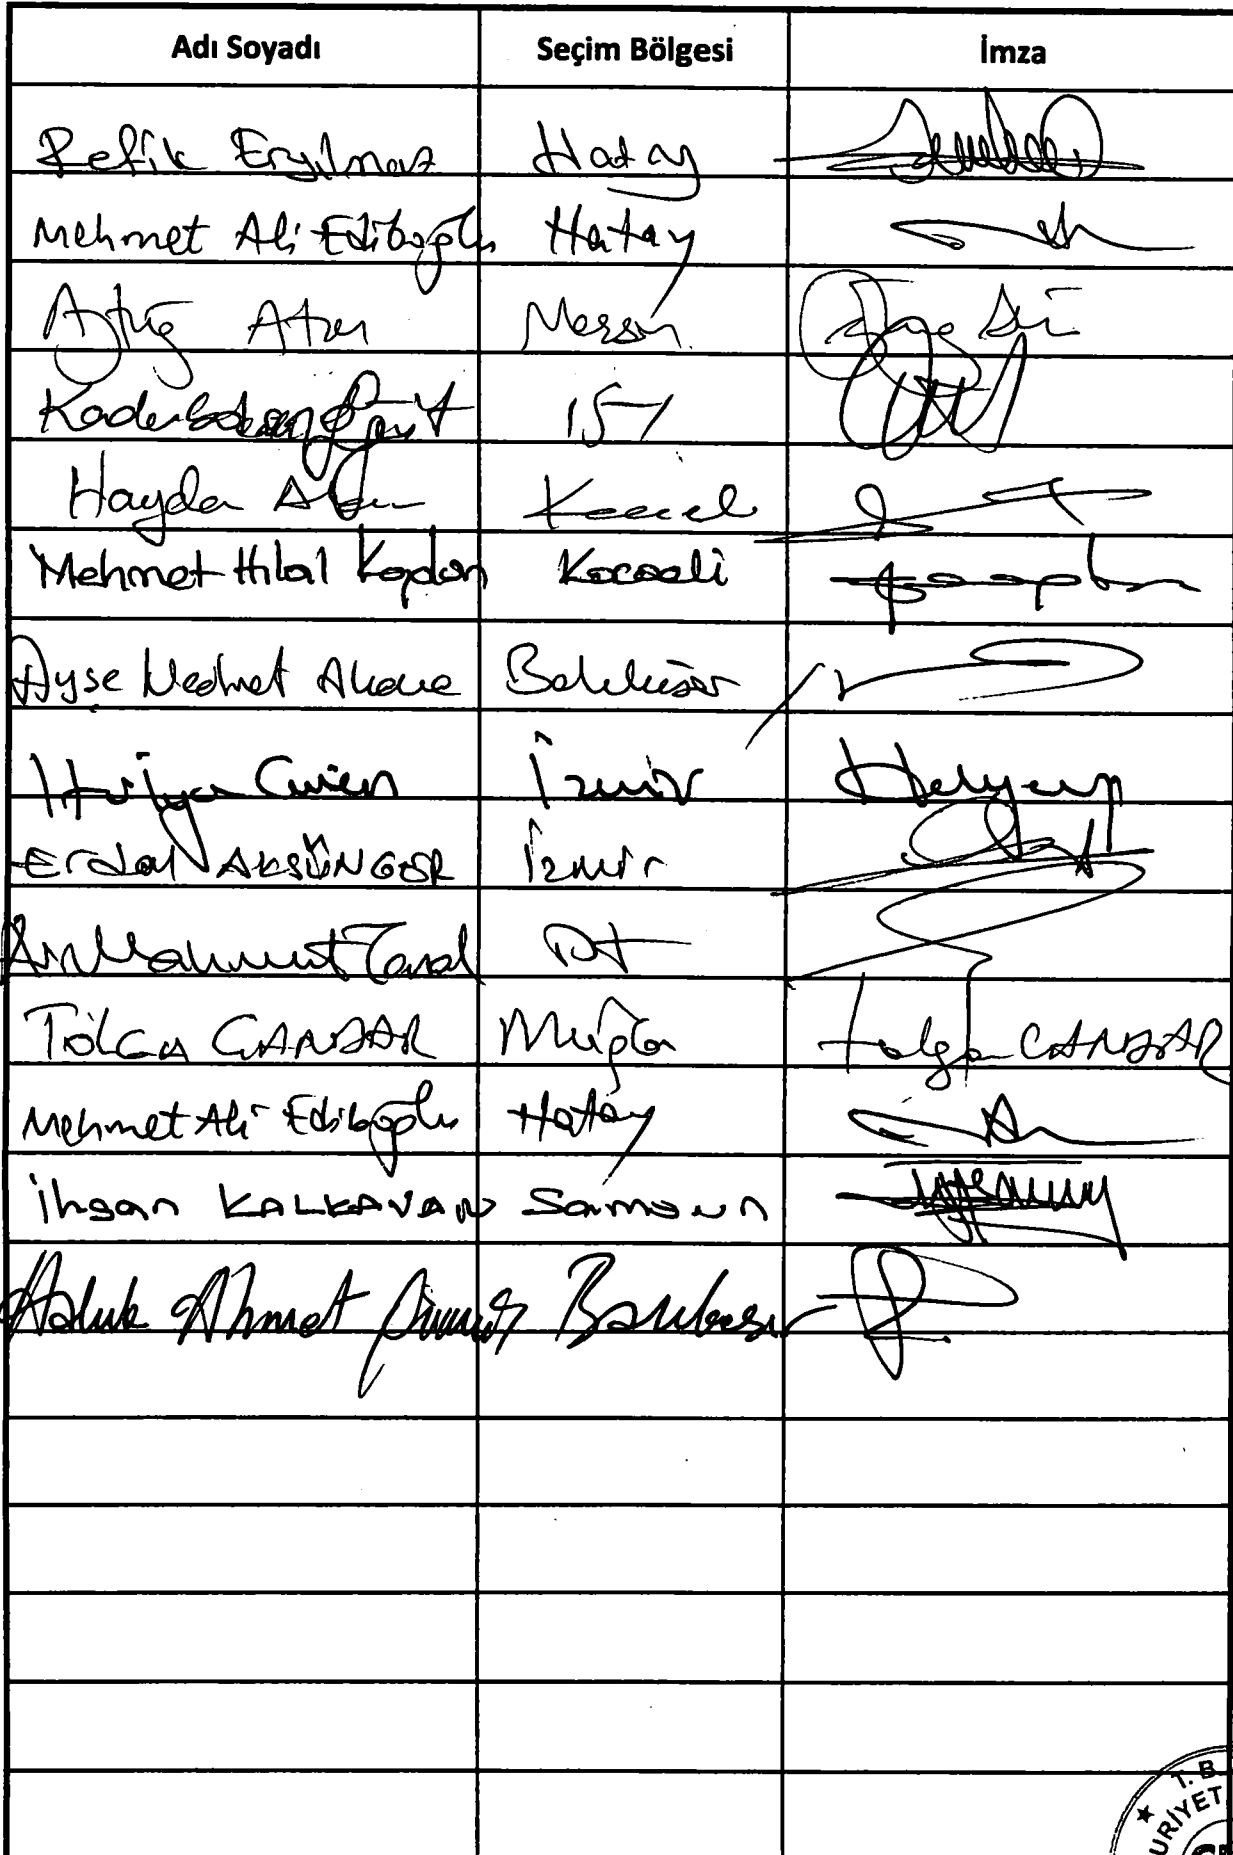 Adı Soyadı Seçim Bölgesi İmza
Refik Eryılmaz Hatay
Mehmet Ali Ediboğlu Hatay
Aytuğ Atıcı Mersin
İST
Haydar Kocaeli
Mehmet Hilal Kaplan Kocaeli
Ayşe Nedret Akova Balıkesir
Hülya Güven İzmir
Erdal AKSÜNGER İzmir
Mahmut Tanal İST
TOLGA ÇANDAR Muğla Tolga ÇANDAR
Mehmet Ali Ediboğlu Hatay
İhsan KALKAVAN Samsun
Haluk Ahmet Gümüş Balıkesir
T. B.
URİYET